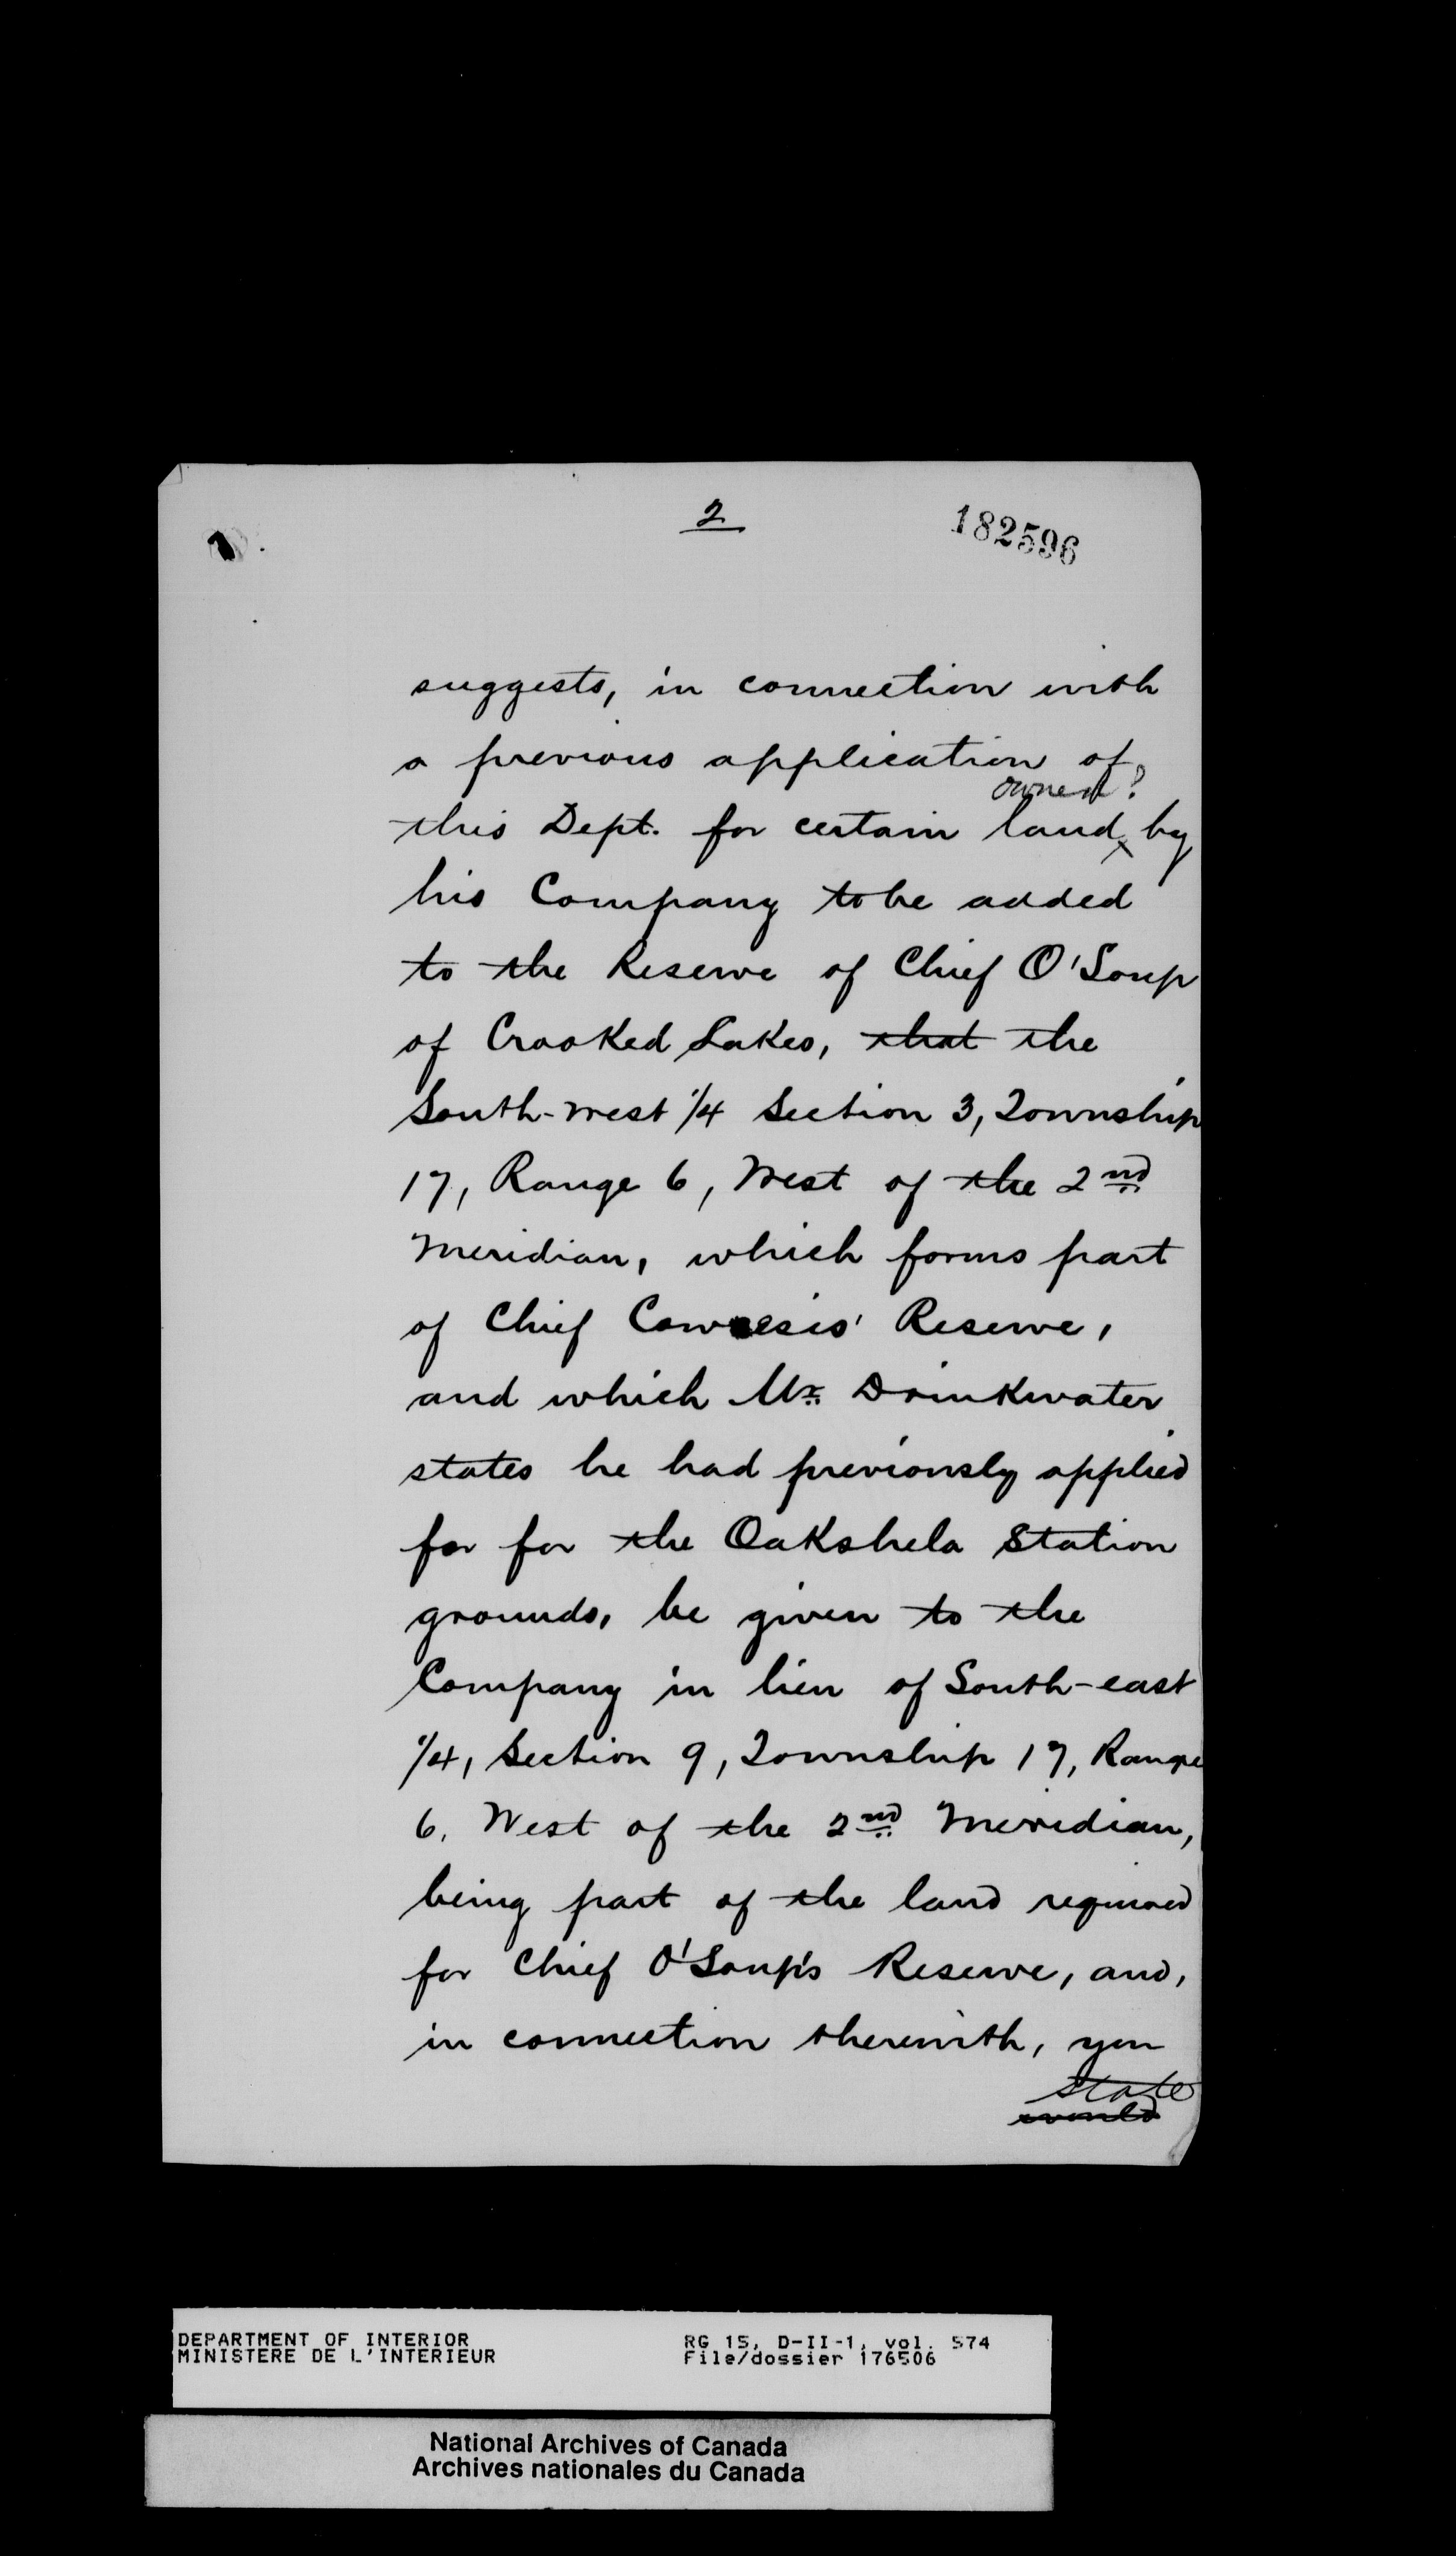 2
182596
suggests, in connection with
a previous application of
owned?
this Dept. for certain land by
his Company to be added
to the Reserve of Chief O'Soup
of Crooked Lakes, that the
South-west 1/4 Section 3, Township
17, Range 6, West of the 2nd
Meridian, which forms part
of Chief Cowesis' Reserve,
and which Mr. Drinkwater
states he had previously applied
for for the Oakshela Station
grounds, be given to the
Company in lieu of South-east
1/4, Section 9, Township 17, Range
6, West of the 2nd Meridian,
being part of the land required
for Chief O'Soup's Reserve, and,
in connection therewith, you
state
would
DEPARTMENT OF INTERIOR
MINISTERE DE L'INTERIEUR
RG 15, D-II-1, vol. 574
File/dossier 176506
National Archives of Canada
Archives nationales du Canada